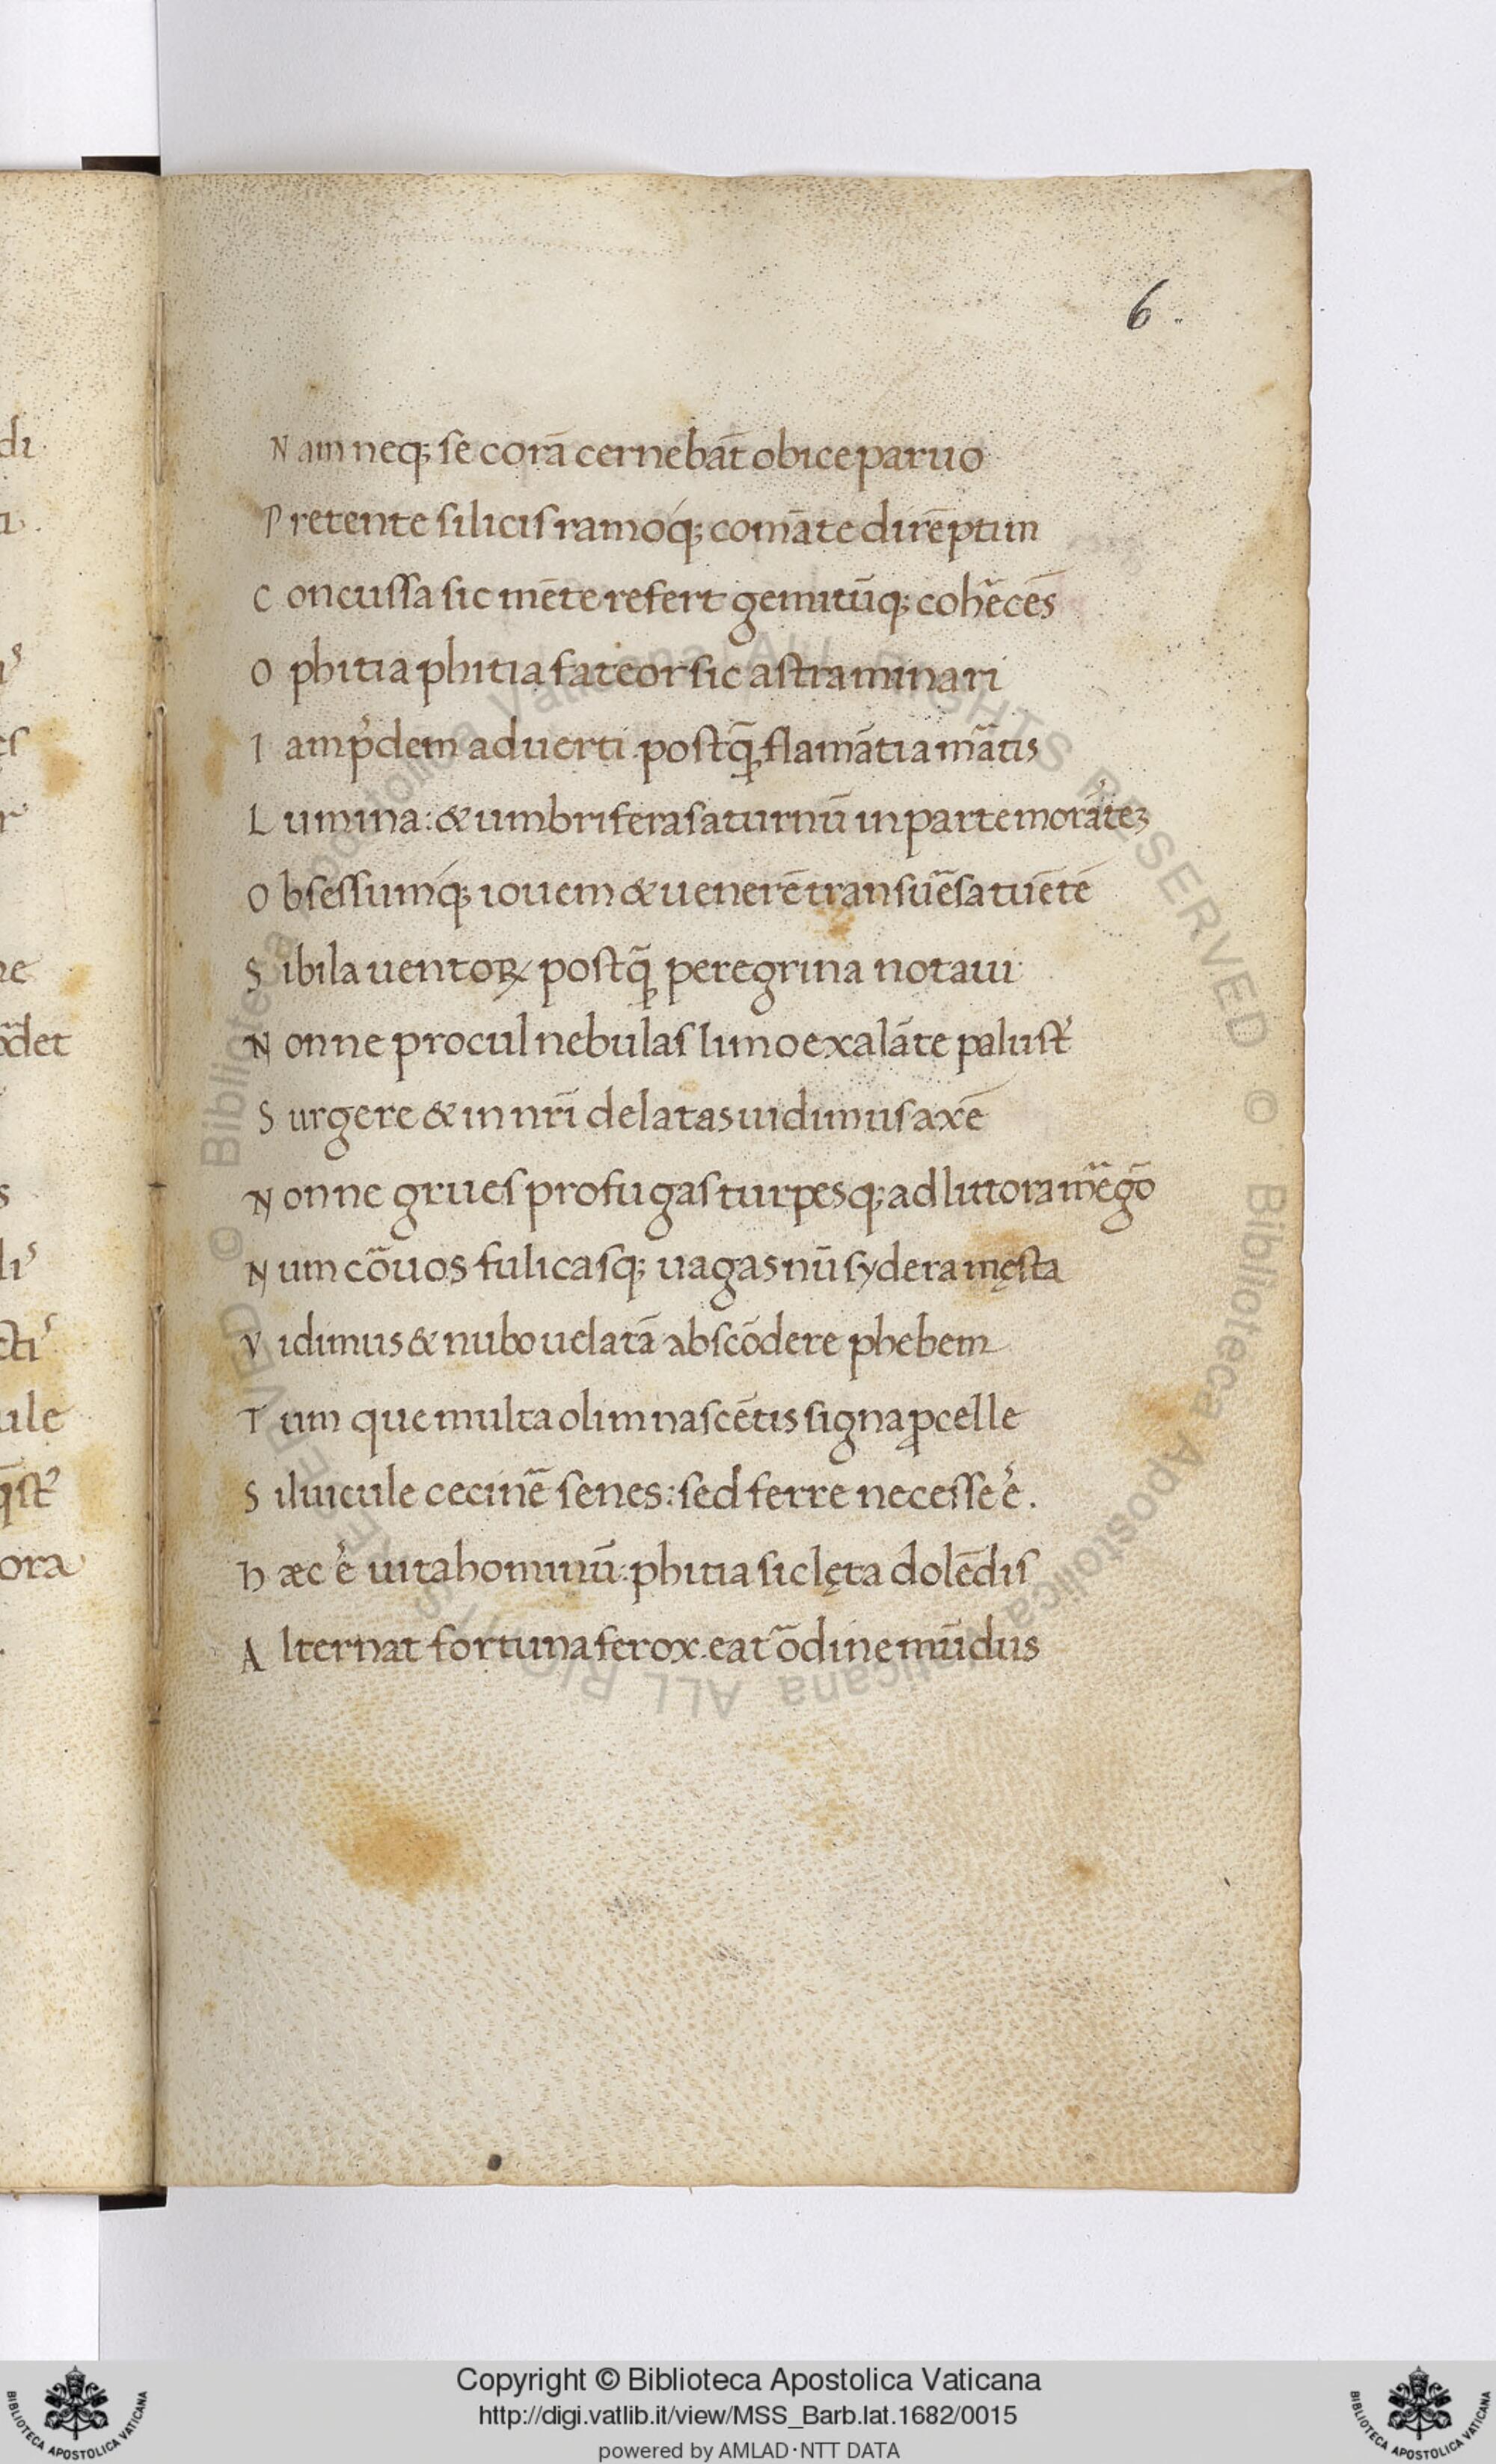 6.
Nam neq; se corā cernebāt obice paruo
Pretente silicis ramoq́; comāte dirēptim
C oncussa sic mēte refert gemitūq; coh̃ecēs
O phitia phitia fateor sic astra minari
I am p͛dem aduerti. postq̃ flamātia mãtis
L umina: & umbriferas aturnū in parte morãtez
O bsessumq́; iouem & uenerē transũesa tuētē
S ibila uentoꝝ postq̃ peregrina notaui
N onne procul nebulas limo exalāte palust͛
S urgere & in nr̄i delatas uidimus axē
N onne grues profugas turpesq; ad littora m̃egõ
N um cõuos fulicasq; uagas nū sydera męsta
V idimus & nubo uelatā abscōdere phebem
T um que multa olim nascētis signa ꝓcelle
S iluicule cecinẽ senes: sed ferre necesse e͛.
H æc e͛ uita hominū: phitia sic lęta dolēdis
A lternat fortuna ferox. eat õdine mūdus
di
es
ne
det
s
cti
ule
ora
© Biblioteca Apostolica Vaticana ALL RIGHTS RESERVED © Biblioteca Apostolica Vaticana ALL RIGHTS RESERVED
Copyright © Biblioteca Apostolica Vaticana
http://digi.vatlib.it/view/MSS_Barb.lat.1682/0015
powered by AMLAD·NTT DATA
BIBLIOTECA APOSTOLICA VATICANA
BIBLIOTECA APOSTOLICA VATICANA